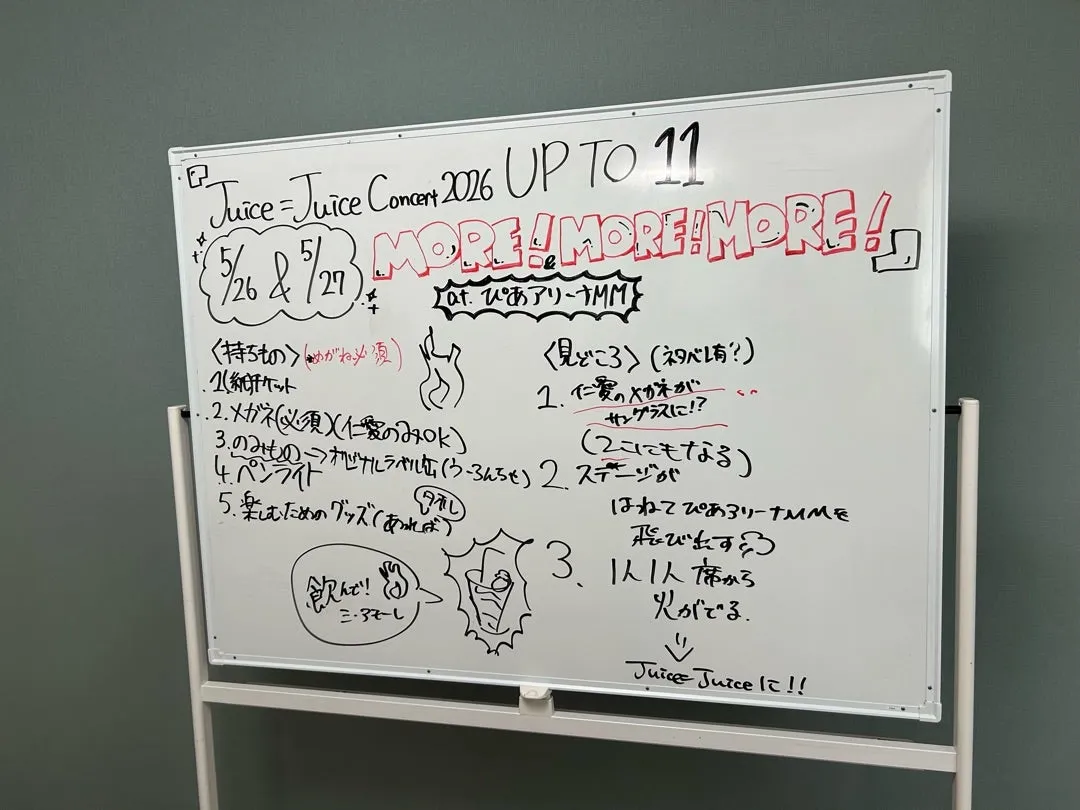 『Juice=Juice Concert 2026 UP TO 11
MORE! MORE! MORE!』
5/26 & 5/27
at. ぴあアリーナMM
〈持ちもの〉(めがね必須)
1. 紙チケット
2. メガネ(必須)(仁愛のみOK)
3. のみもの→オリジナルラベル缶(うーろんちゃ)
4. ペンライト
5. 楽しむためのグッズ(あれば)
飲んで!
ミ・アモーレ
〈見どころ〉(ネタバレ有?)
1. 仁愛のメガネが
サングラスに!?
(2こにもなる)
2. ステージが
はねてぴあアリーナMMを
飛び出す
3. 1人1人席から
火がでる.
Juice=Juiceに!!